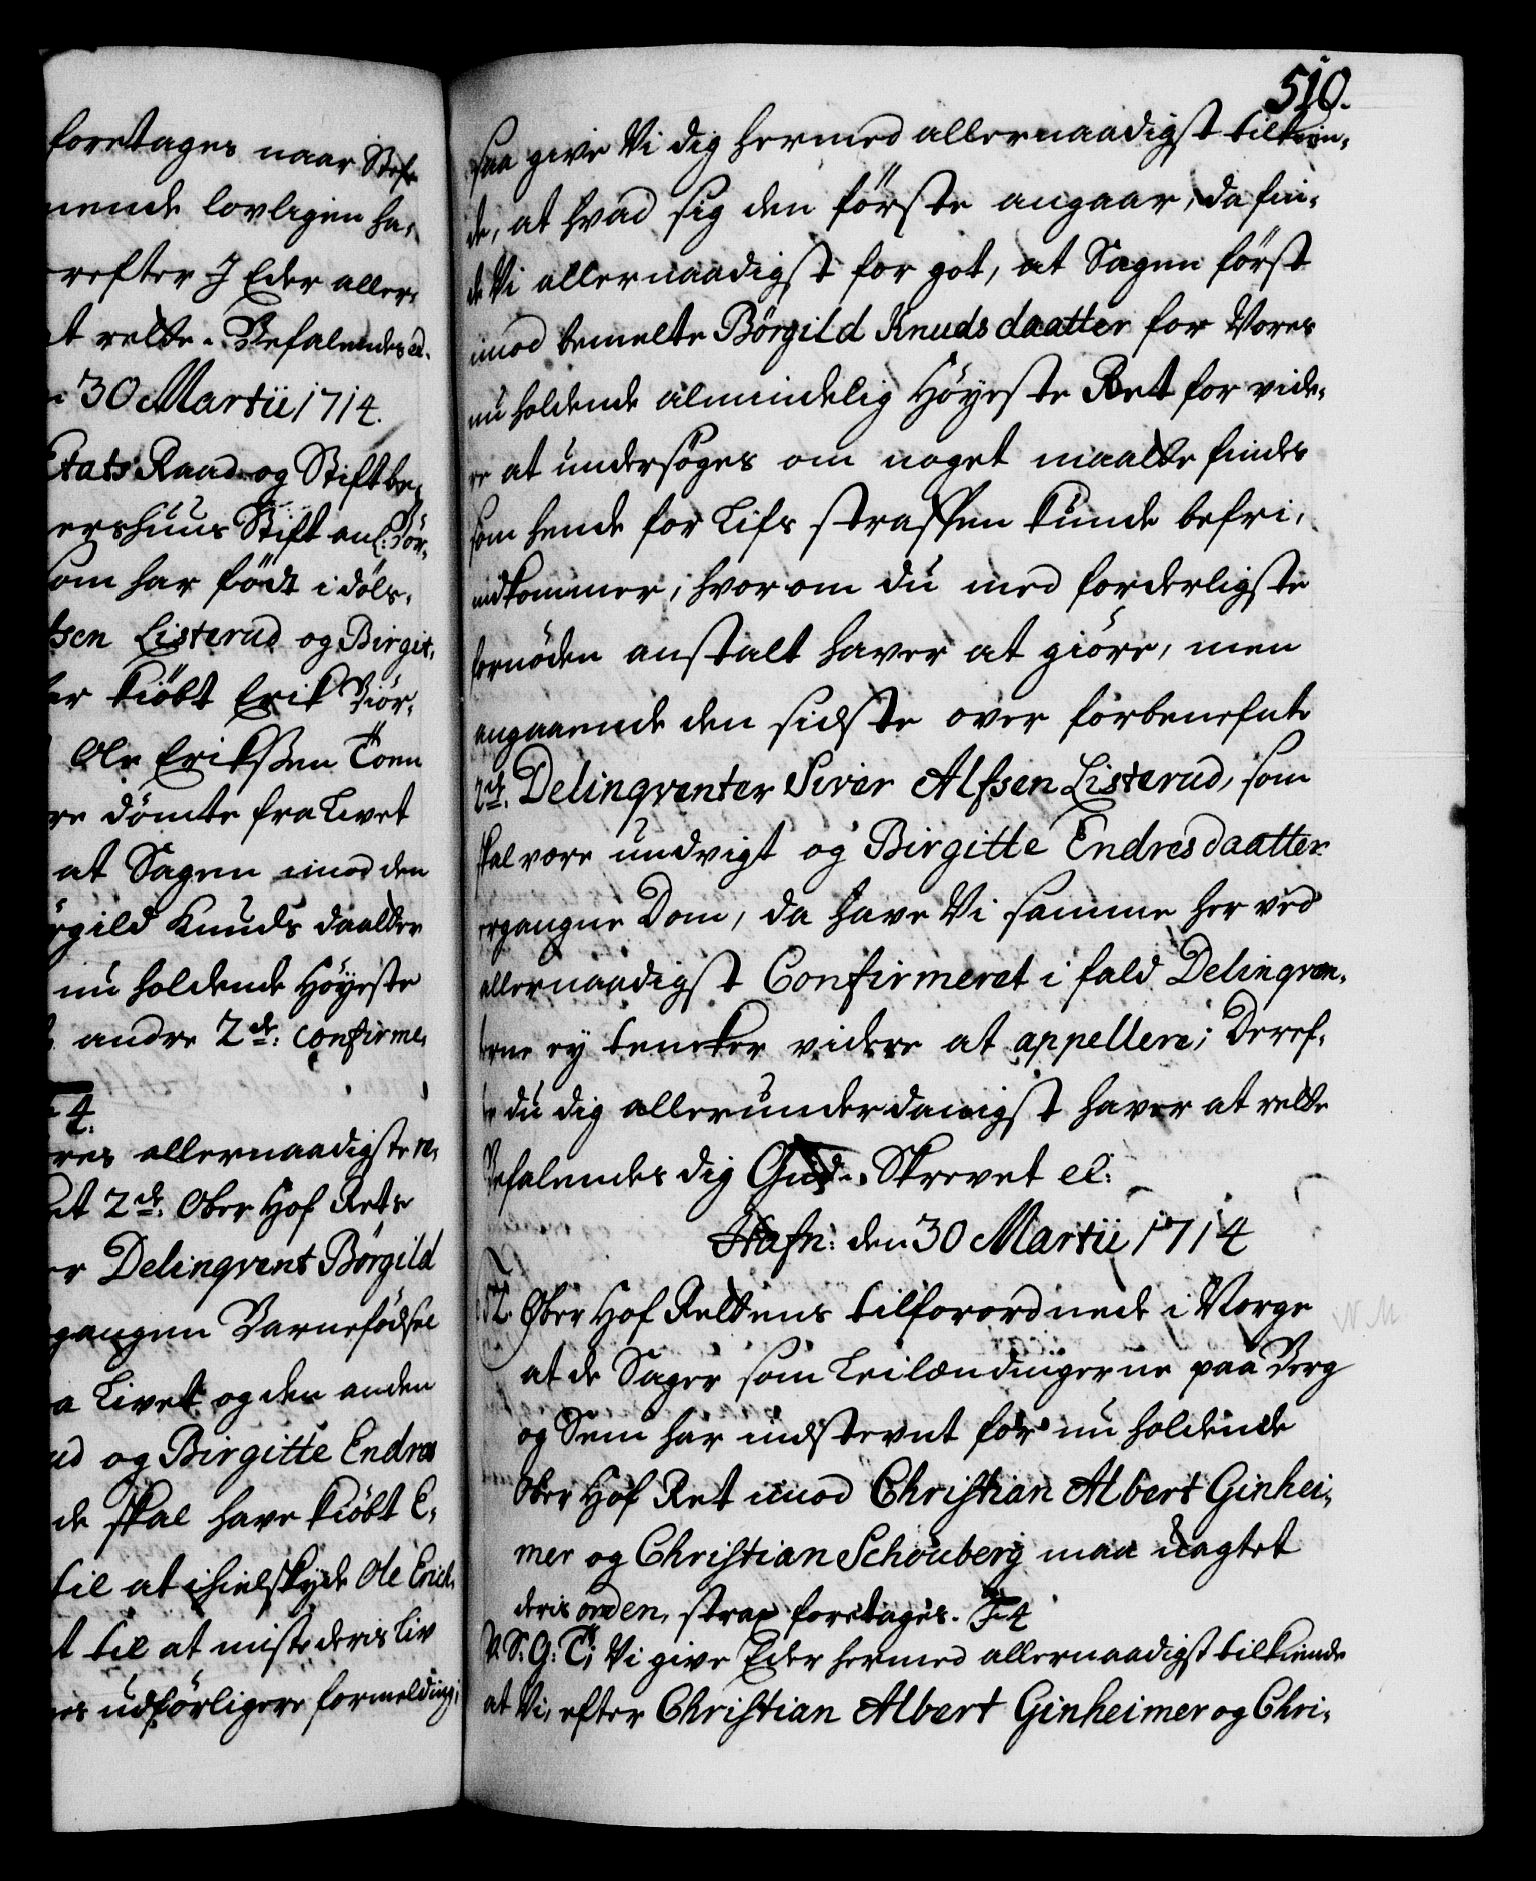 foretages naar Stef
nende lovligen ha,
refter I Eder aller,
at rette. Befalendes ed.
30 Martii 1714.
Etats Raad og Stiftbe,
ershuus Stift anl: Bör,
som har födt i döls,
fsen Listerud og Birgit,
er kiöbt Erik Biör,
Ole Eriksen Toen
re dömte fra Livet
at Sagen imod den
rgild Knuds daatter
nu holdende Höyeste
andre 2de: confirme,
4.
res allernaadigste
at 2de: Ober Hof Rets
r Delinqvent Börgild
gangen Barnefödsel
a Livet og den anden
ud og Birgitte Endres
de skal have kiöbt E,
til at ihielskyde Ole Erich,
t til at miste deris Liv
es udförligere formelding,
510.
saa give Vi dig hermed allernaadigst tilkien,
de, at hvad sig den förste angaar, da fin,
de Vi allernaadigst for got, at Sagen först
imod bemelte Börgild Knudsdaatter for Vores
nu holdende almindelig Höyeste Ret for vide,
re at undersöges om noget maatte findes
som hende for Lifs straffen kunde befri,
indkommer, hvorom du med forderligste
fornöden anstalt haver at giöre, men
angaaende den sidste over forbenefnte
2de. Delinqventer Siver Alfsen Listerud, som
skal være undvigt og Birgitte Endresdaatter
ergangne Dom, da have Vi samme her ved
allernaadigst Confirmeret i fald Delinqven,
terne ey tencker videre at appellere; Deref,
te du dig allerunderdanigst haver at rette
Befalendes dig Gud. Skrevet el:
Hafn: den 30 Martii 1714
52. Ober Hof Rettens tilforordnede i Norge
at de Sager som Leilændingerne paa Berg
og Sem har indstevnt for nu holdende
Ober Hof Ret imod Christian Albert Ginhei,
mer og Christian Schouberg maa uagtet
deris orden, strax foretages. F 4
V. S. G: T; Vi give Eder hermed allernaadigst tilkiende
at Vi, efter Christian Albert Ginheimer og Chri,
N M